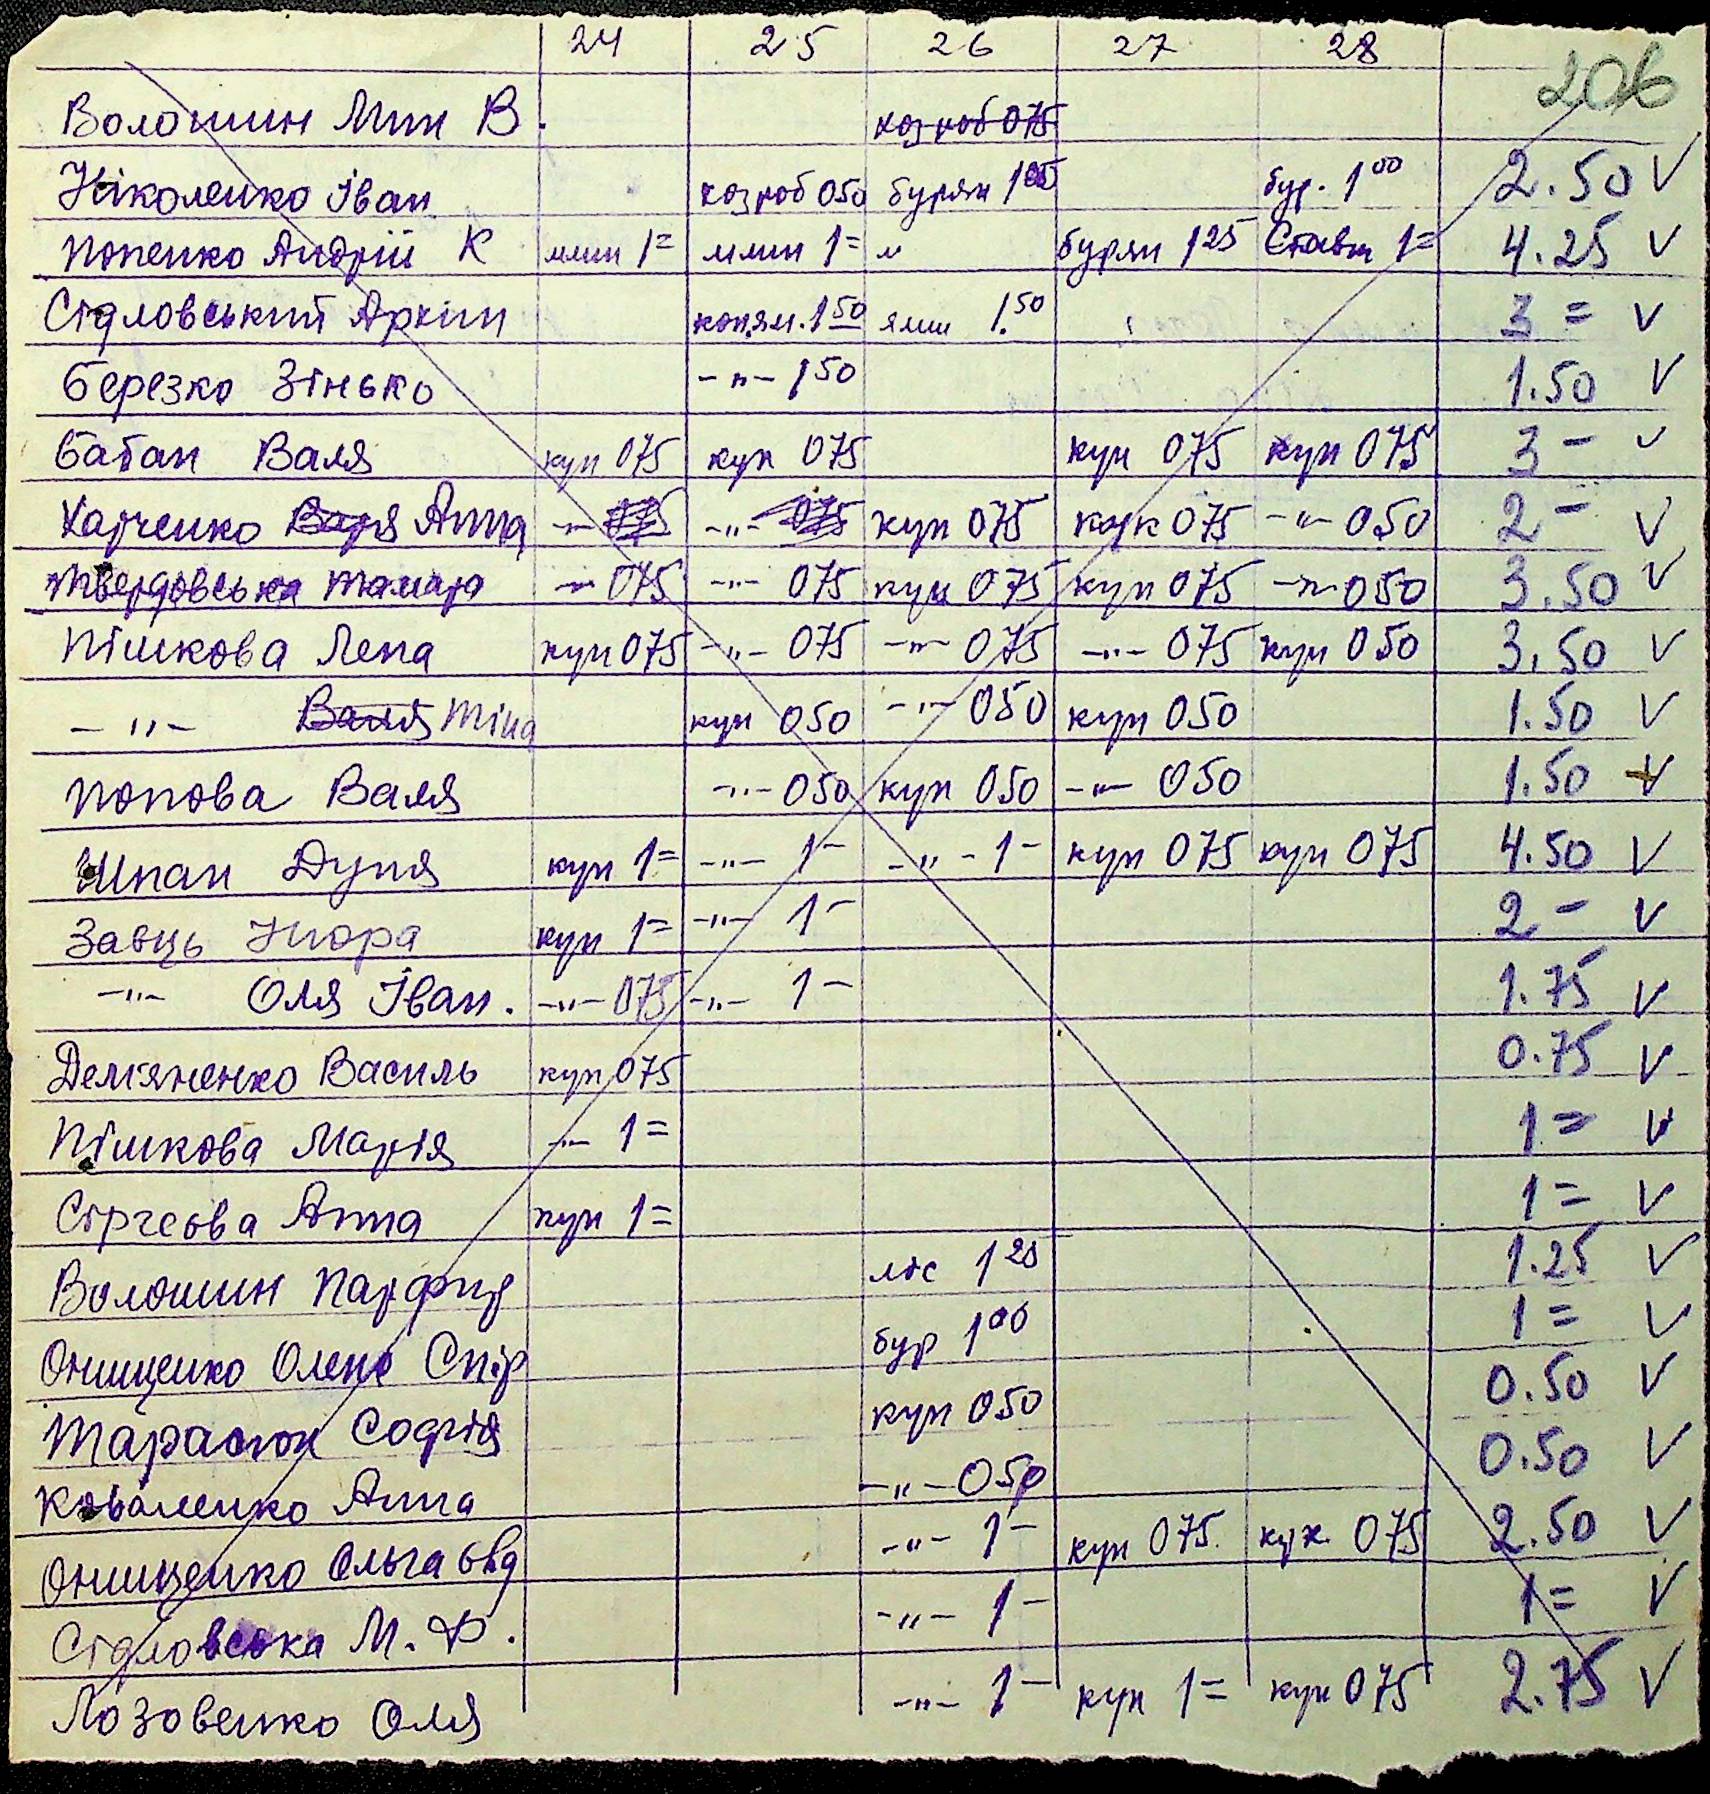 24 25 26 27 28 206
Волошин Мик В. коз роб 075
Ніколенко Іван коз роб 050 бурян 1 00 бур. 1 00 2.50 V
Попенко Андрій К млин 1= млин 1= " бурян 1 25 Ставк 1= 4.25 V
Сідловський Архип коп.ям. 1 50 ями 1.50 3= V
Березко Зінько -"- 1 50 1.50 V
Бабан Валя куп 075 куп 075 куп 075 куп 075 3- V
Харченко Валя Анна -"- 075 -"- 075 куп 075 кук 075 -"- 050 2- V
Твердовська Тамара -"- 075 -"- 075 куп 075 куп 075 -"- 050 3.50 V
Пішкова Лена куп 075 -"- 075 -"- 075 -"- 075 куп 050 3.50 V
-"- Валя Ніна куп 050 -"- 050 куп 050 1.50 V
Попова Валя -"- 050 куп 050 -"- 050 1.50 V
Шпак Дуня куп 1= -"- 1- -"- 1- куп 075 куп 075 4.50 V
Заєць Нюра куп 1= -"- 1- 2- V
-"- Оля Іван. -"- 075 -"- 1- 1.75 V
Демяненко Василь куп 075 0.75 V
Пішкова Марія -"- 1= 1= V
Сергєєва Анна куп 1= 1= V
Волошин Парфир ліс 1 25 1.25 V
Онищенко Олена Спір бур 1 00 1= V
Тарасюк Софія куп 050 0.50 V
Коваленко Анна -"- 050 0.50 V
Онищенко Ольга Овд -"- 1- куп 075. кук. 075 2.50 V
Сідловська М. Ф. -"- 1- 1= V
Лозовенко Оля -"- 1- куп 1= куп 075 2.75 V